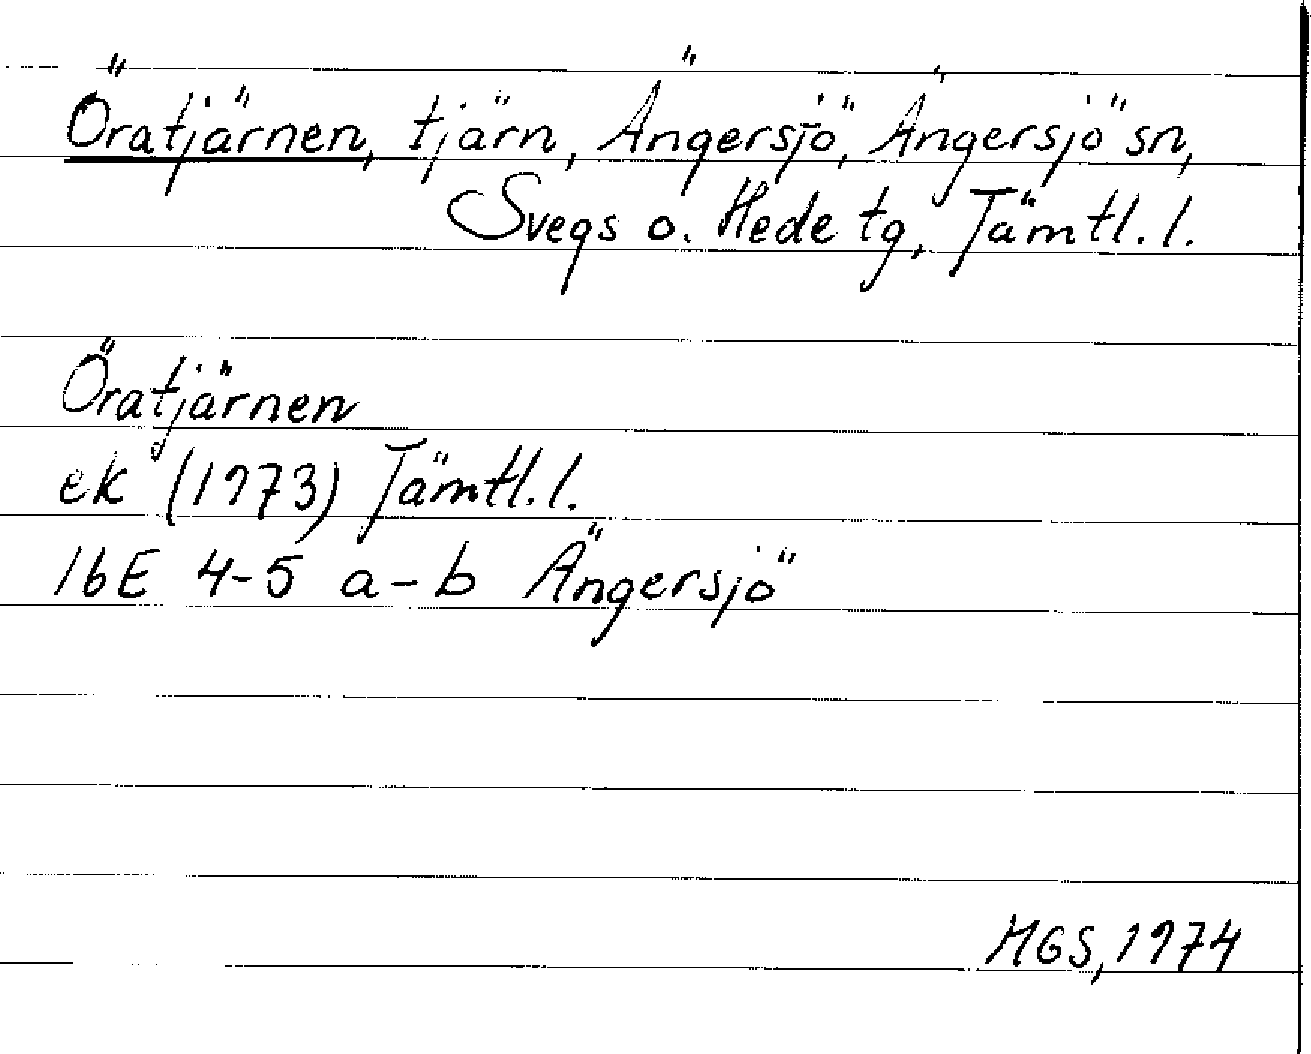 Öratjärnen, tjärn, Ängersjö, Ängersjö sn,
Svegs o. Hede tg, Jämtl. l.
Öratjärnen
ek (1973) Jämtl. l.
16E 4-5 a-b Ängersjö
MGS, 1974